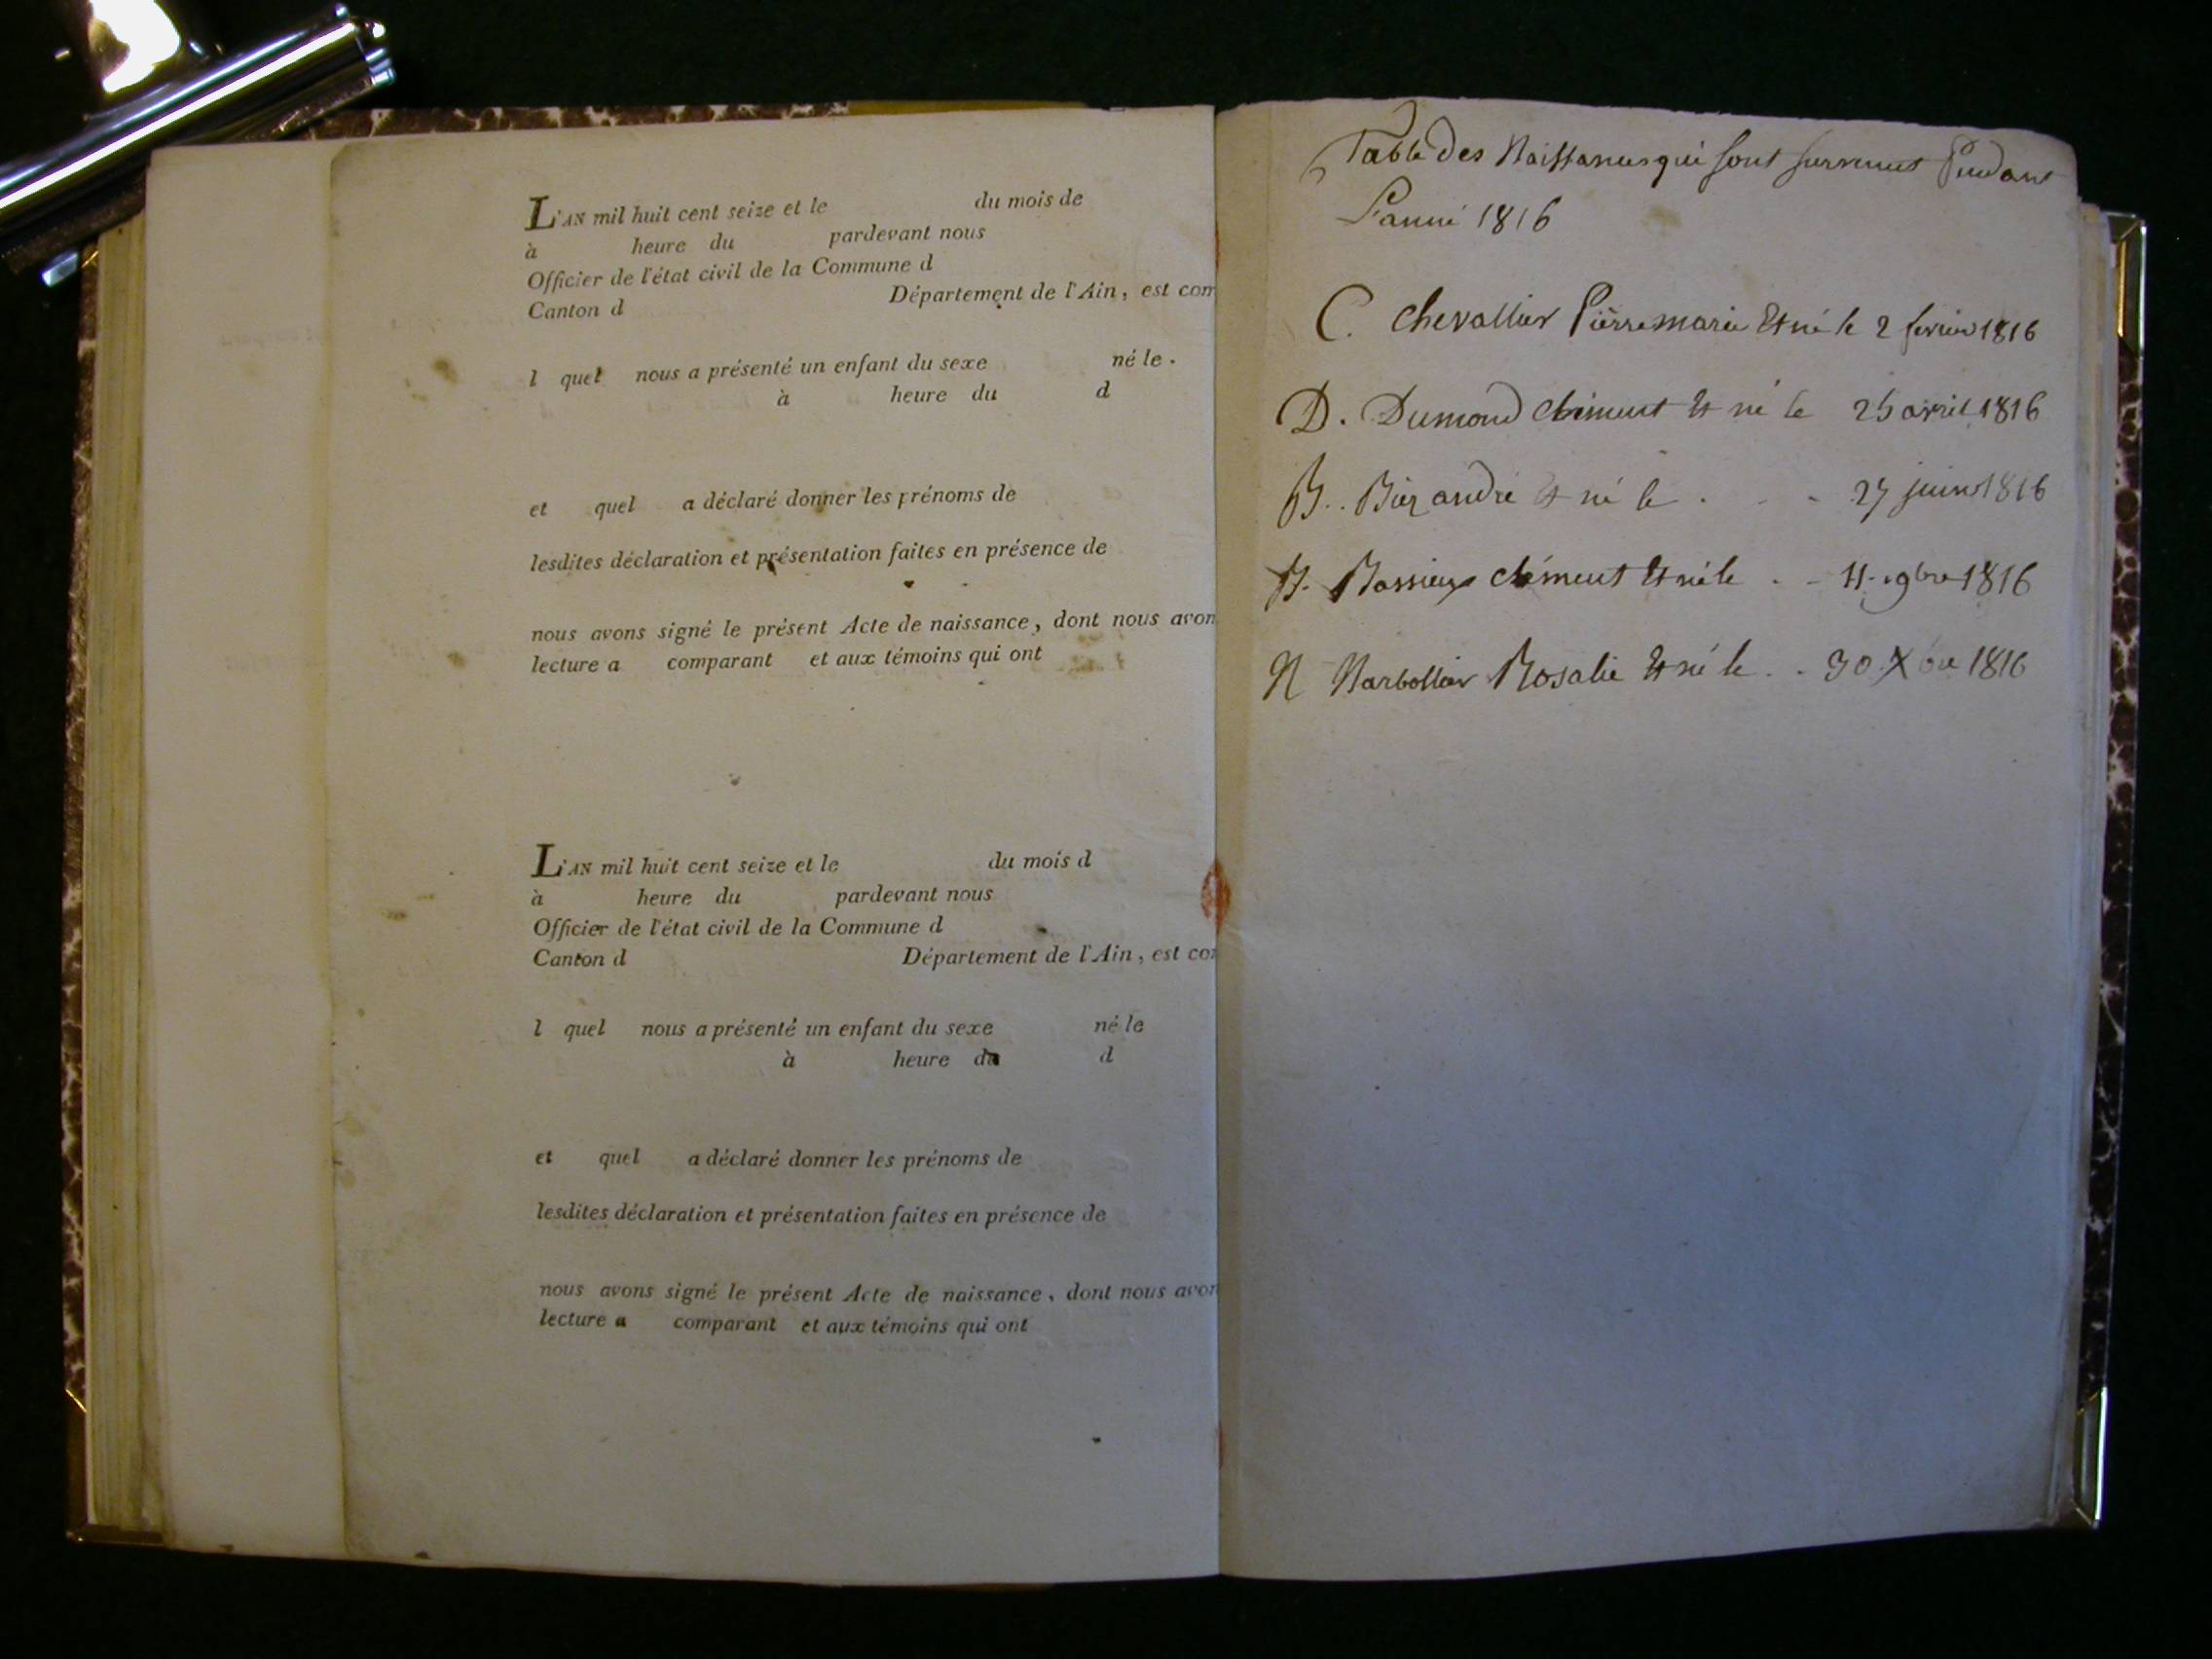 L'AN mil huit cent seize et le du mois de
à heure du pardevant nous
Officier de l'état civil de la Commune d
Canton d Département de l'Ain, est com
l quel nous a présenté un enfant du sexe né le .
à heure du d
et quel a déclaré donner les prénoms de
lesdites déclaration et présentation faites en présence de
nous avons signé le présent Acte de naissance, dont nous avon
lecture a comparant et aux témoins qui ont
L'AN mil huit cent seize et le du mois d
à heure du pardevant nous
Officier de l'état civil de la Commune d
Canton d Département de l'Ain, est con
l quel nous a présenté un enfant du sexe né le
à heure du d
et quel a déclaré donner les prénoms de
lesdites déclaration et présentation faites en présence de
nous avons signé le présent Acte de naissance, dont nous avon
lecture a comparant et aux témoins qui ont
Table des Naissances qui sont survenues Pendant
L'année 1816
C. Chevallier Pierre marie Est né le 2 fevrier 1816
D. Dumond Clément Est né le 25 avril 1816
B.. andré Est né le . - - 27 juin 1816
B. Bassieux Clément Est né le . - 11. 9bre 1816
N Narbollier Rosalie Est né le . . 30 Xbre 1816